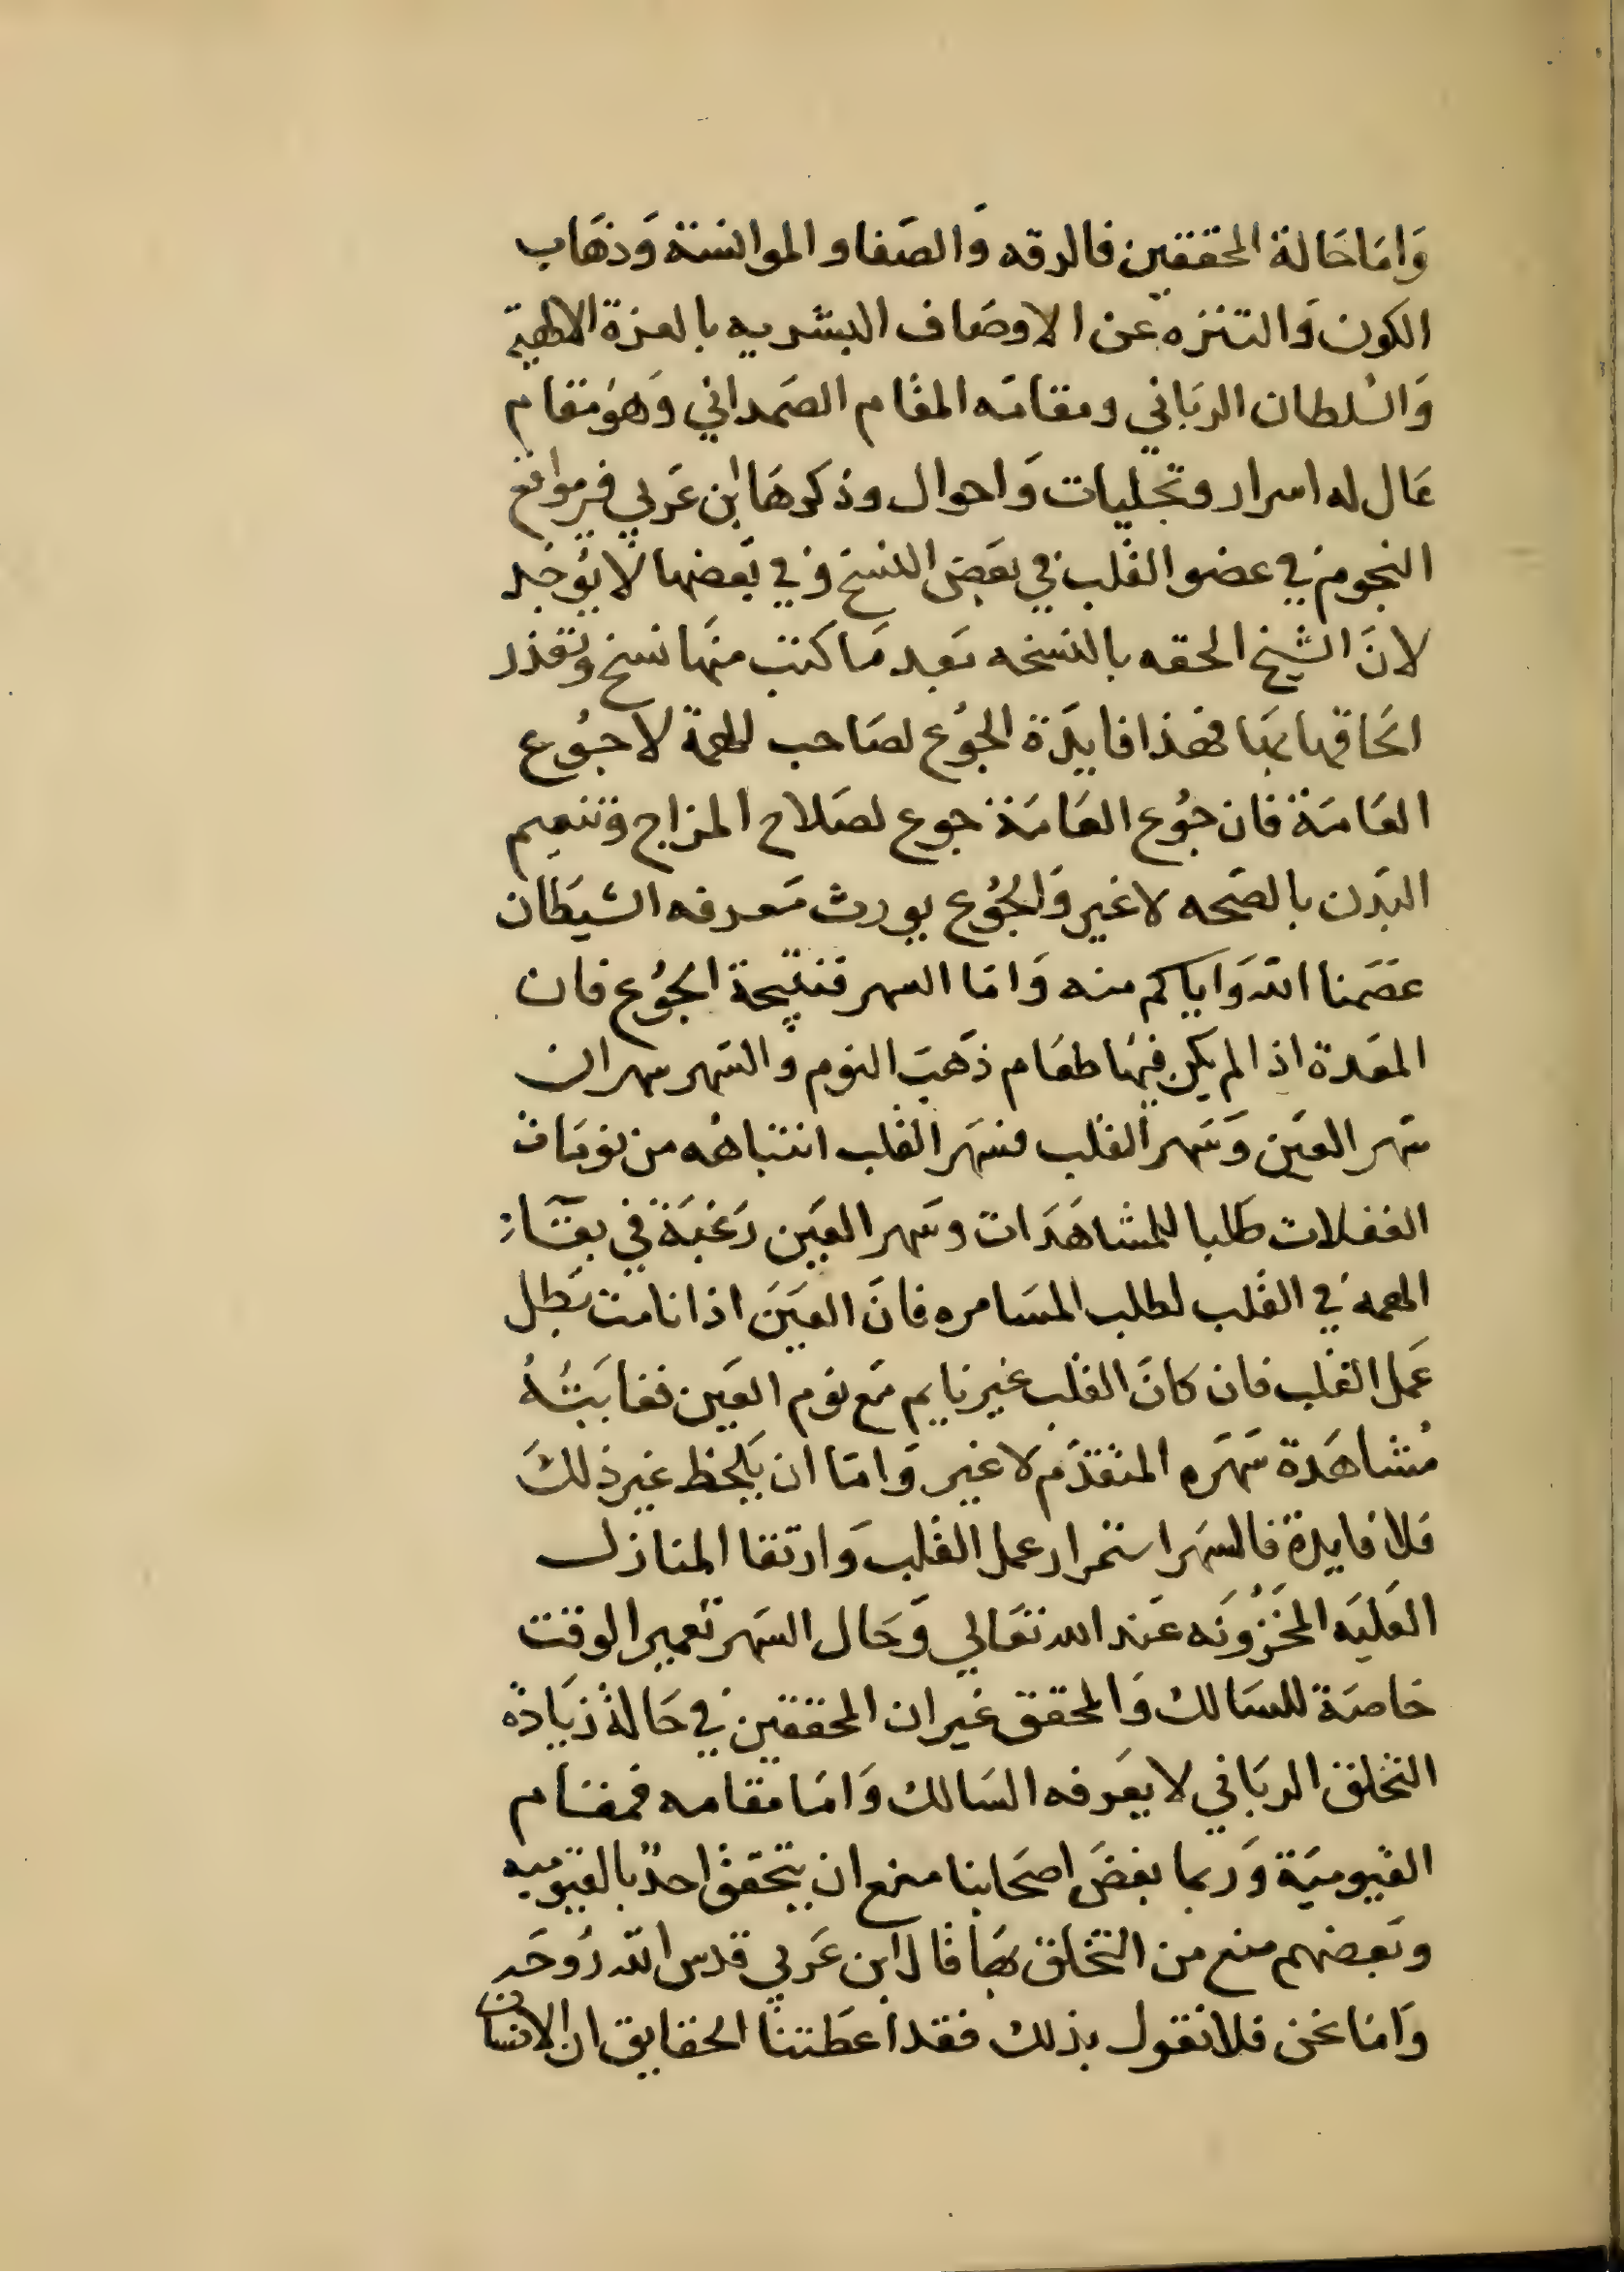 وَامَا حَالة المحققين فالرقه وَالصَفا و الموانسة وَذهَاب
الكون وَالتنزه عن الاوصَاف البشريه بالعزة الالهية
وَالسُلطان الربَاني ومقامَه المقام الصَمداني وَهوَ مقام
عَال له اسرار وتجليات وَاحوال وذكرهَا ابن عَربي في مواقع
النجوم في عضو القلب في بعَض النسخ وَفي بَعضها لا يُوجَد
لانَ الشيخ الحقه بالنسخه بَعد مَا كتب منهَا نسخ وتعَذر
الحَاقها بهَا فهَذا فايدَة الجُوع لصَاحب الهمة لا جُوع
العَامَة فان جُوع العَامَة جوع لصَلاح المزاج وَتنعيم
البَدن بالصَحه لا غير وَالجُوع يورث مَعرفه الشيطَان
عصَمنا الله وَاياكم منه وَامَا السهر فنتيجة الجُوع فان
المعَدة اذا لم يكن فيهَا طعَام ذهَبَ النوم وَالسَهر سهران
سَهر العَين وَسَهر القلب فسَهَر القلب انتباهُه من نومَات
الغفلات طَلبا للمشاهَدَات وسَهر العَين رَغبَة في بقَاء
الهمة في القلب لطلب المسَامره فانَ العَينَ اذا نامت بَطل
عَمل القلب فان كانَ القلب غير نايم مَع نوم العَين فغايَتُهُ
مُشاهَدة سَهَره المتقدَم لا غير وَامَا ان يَلحَظ غير ذلكَ
فلا فايدة فالسَهر استمرار عمل القلب وَارتقا المنازل
العَليَه المخَزُونَه عَند الله تعَالي وَحَال السَهر تعمير الوقت
خاصَة للسَالك وَالمحقق غير ان المحققين في حَالة زيَادة
التخلق الربَاني لا يعَرفه السَالك وَامَا مقامه فمقام
القيوميَة وَربما بعضَ اصحَابنا منع ان يتحقق احدٌ بالقيوميه
وبَعضهم منع من التخلق بهَا قال ابن عَربي قدس الله رُوحَه
وَامَا نحن فلا نقول بذلك فقد اعطَتنا الحقايق ان الانسان